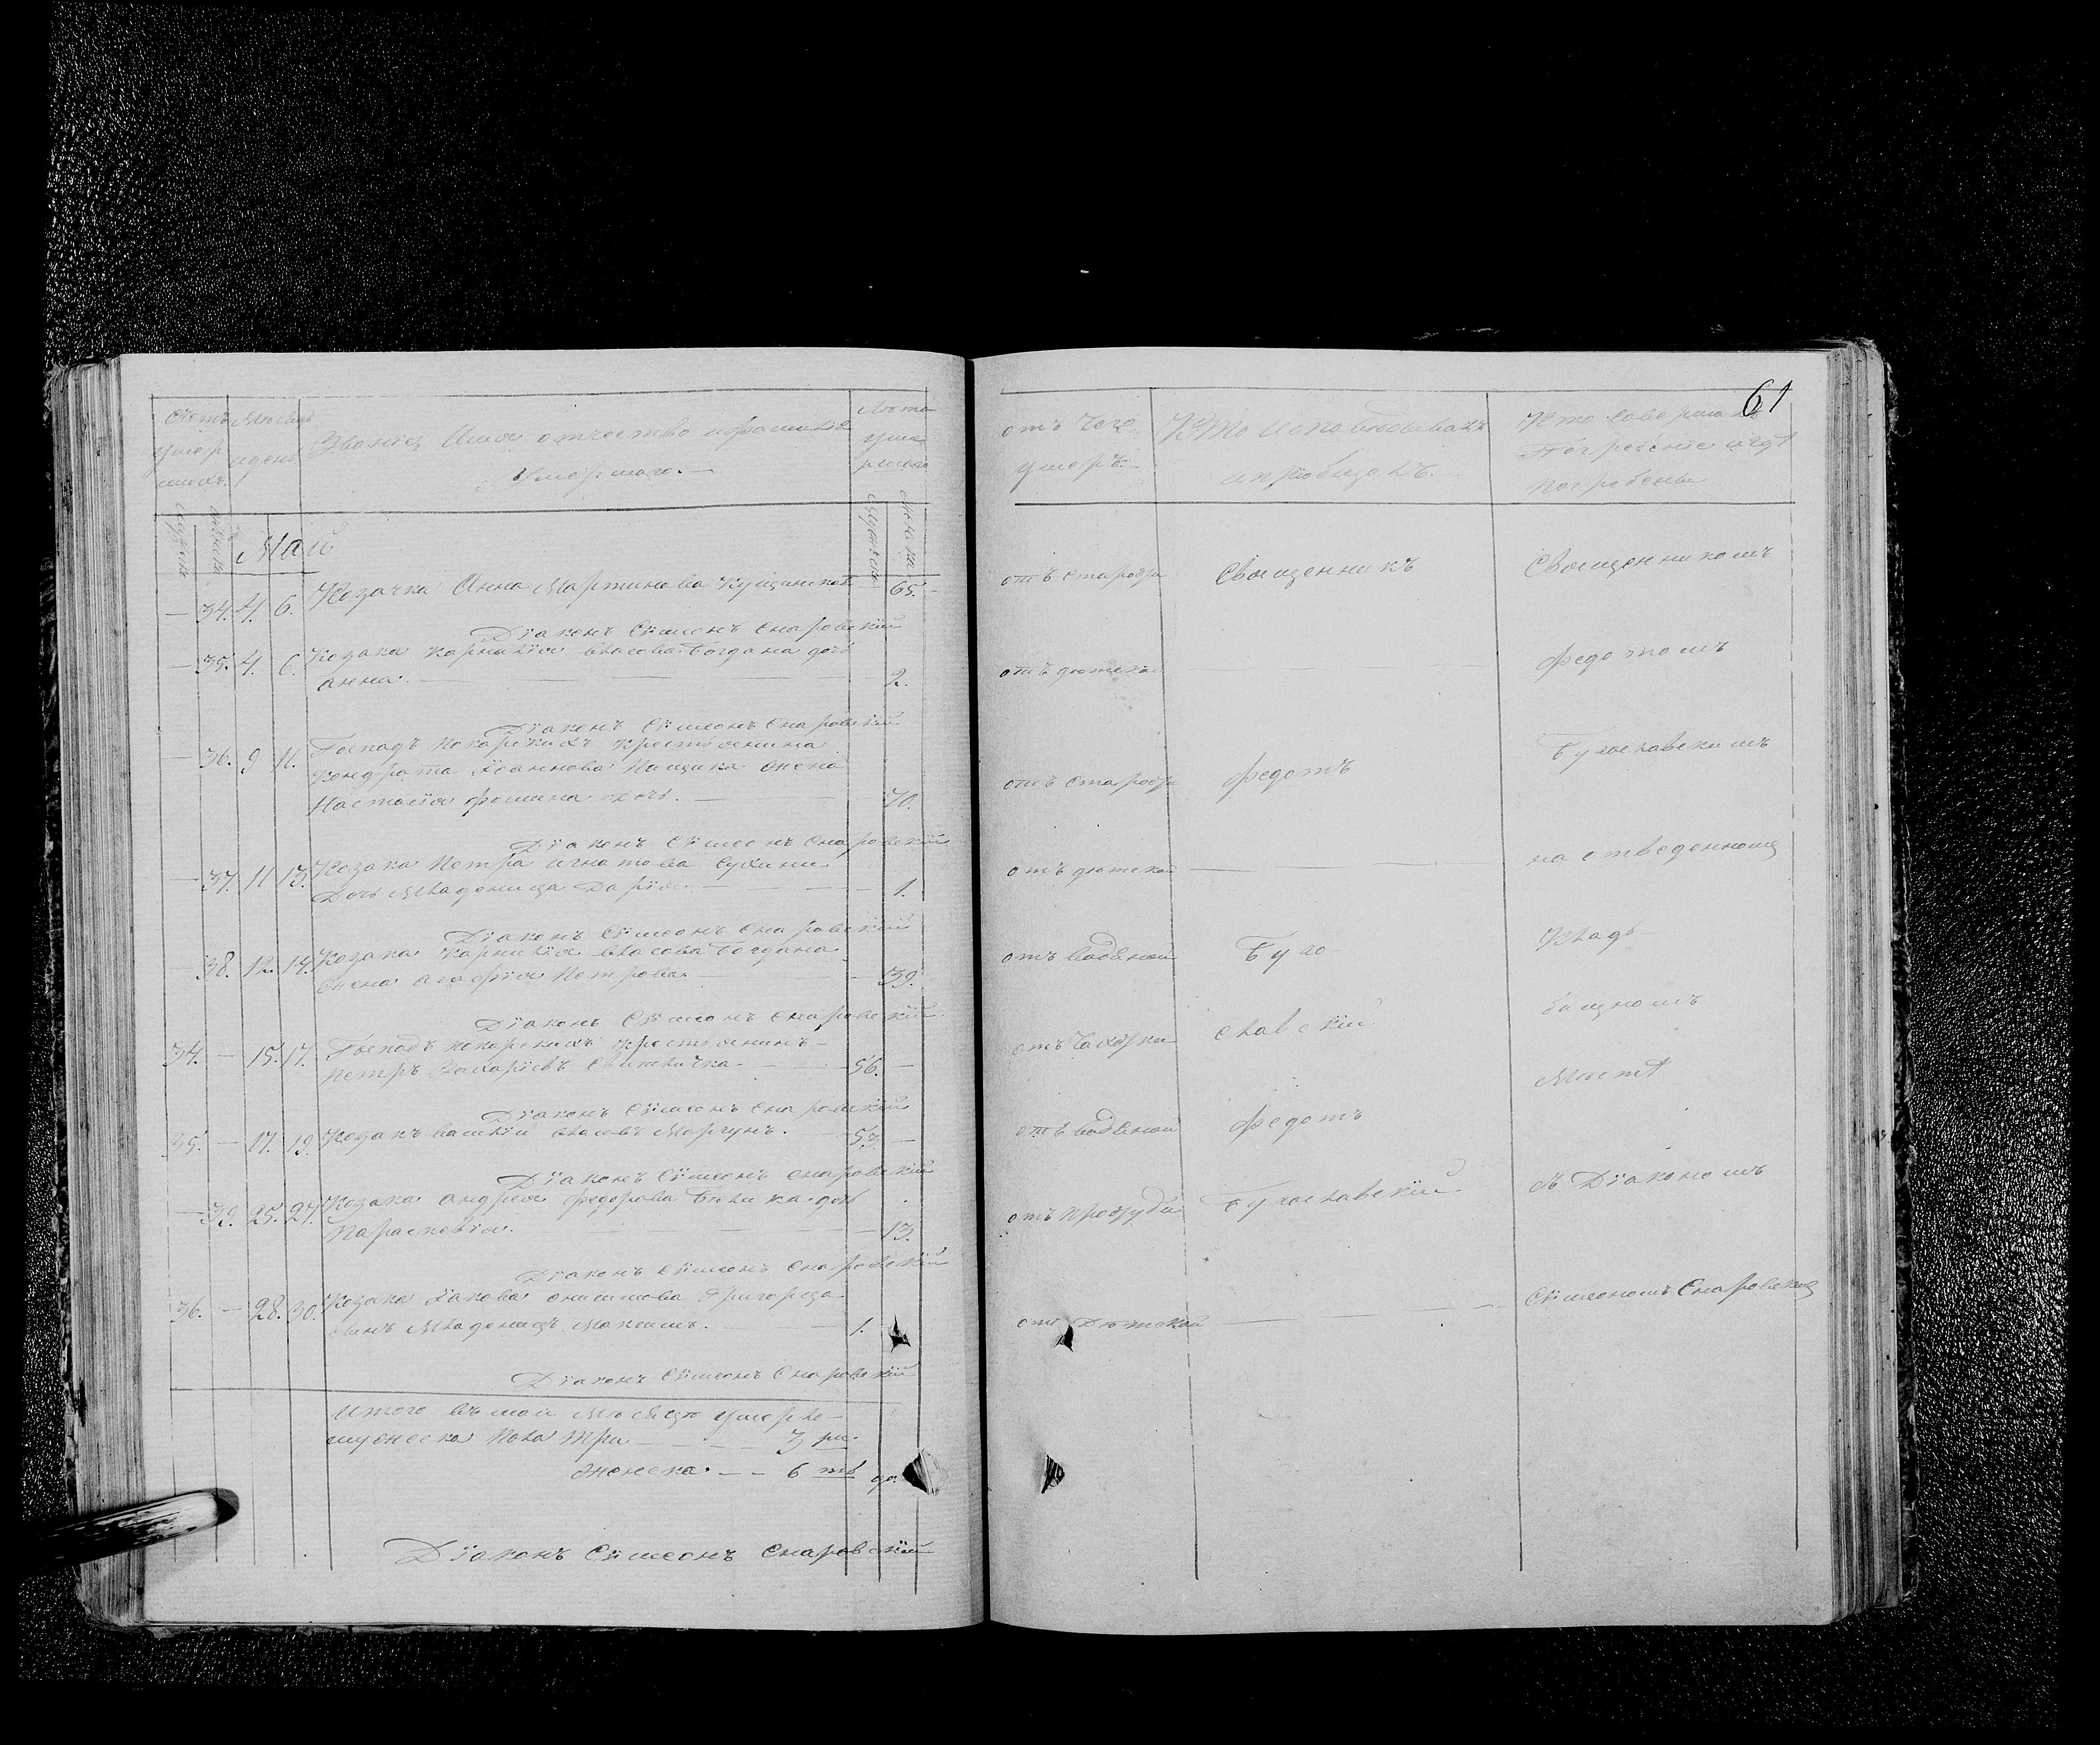 61
Звание, Имя отчество и фамилия
Умершаго.
Май
34. 4. 6. Козачка Анна Мартинова 65.
Діаконъ Сѵмеонъ Снаровскій
35. 4. 6. Козака Корнилія Власова Богдана дочь
анна. 2.
Діаконъ Сѵмеонъ Снаровскій
36. 9 11. Господъ крестьянина
Кондрата Іоаннова жена
Настасія Фомина дочь. 70.
Діаконъ Сѵмеонъ Снаровскій
37. 11 13. Козака Петра Игнатова Сухини
Дочь Младеница Дарія. 1.
Діаконъ Сѵмеонъ Снаровскій
38. 12. 14. Козака Корнилія Власова Богдана
жена агафія Петрова. 39.
Діаконъ Сѵмеонъ Снаровскій
34. 15. 17. Господъ крестьянинъ
петръ Захаріевъ 56.
Діаконъ Сѵмеонъ Снаровскій
35. 17. 19. Козакъ василій Власовъ Моргунъ. 53.
Діаконъ Сѵмеонъ Снаровскій
39. 25. 27. Козака андрея федорова дочь
Параскевія. 13.
Діаконъ Сѵмеонъ Снаровскій
36. 28. 30. Козака Іакова онисимова Григорца
сынъ Младенецъ Максимъ. 1.
Діаконъ Сѵмеонъ Снаровскій
Итого въ маи Мѣсяцѣ умерло
мужеска пола три 3 ри
Женска. 6 ть
Діаконъ Сѵмеонъ Снаровскій
отъ Чего
умеръ.
Кто исповѣдывалъ
и пріобщалъ.
Кто совершалъ
Погребеніе и гдѣ
погребены
отъ старости Священникъ Священникомъ
отъ дѣтской федотомъ
отъ старости федотъ Бугославскимъ
отъ дѣтской на отведенномъ
отъ водяной Буго- Клад-
отъ чахотки славскій бищномъ
Мѣстѣ
отъ водяной федотъ
отъ простуди Бугославскій съ Діакономъ
отъ Дѣтской Сѵмеономъ Снаровскимъ